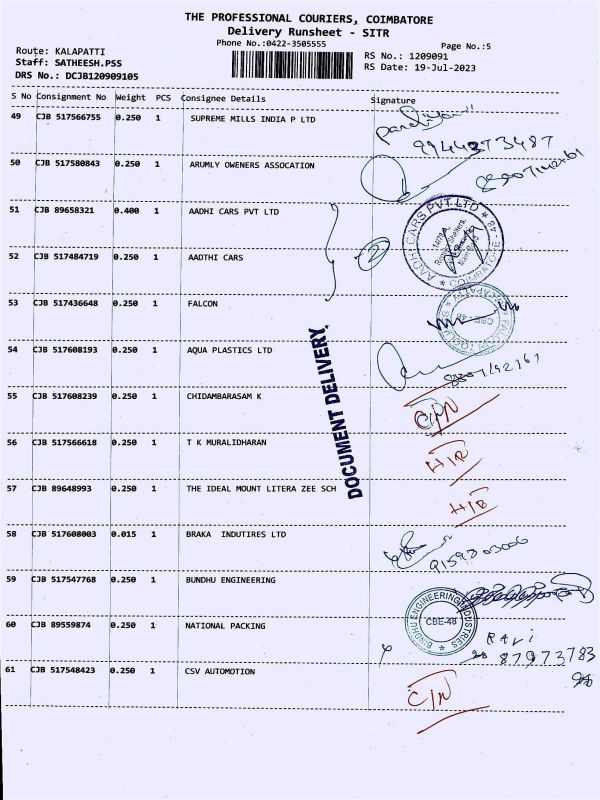 THE PROFESSIONAL COURIERS, COIMBATORE
Delivery Runsheet - SITR
Phone No.:0422-3505555
Page No.:5
Route: KALAPATTI
Staff: SATHEESH.PSS
DRS No.: DCJB120909105
RS No.: 1209091
RS Date: 19-Jul-2023
S No Consignment No Weight PCS Consignee Details Signature
49 CJB 517566755 0.250 1 SUPREME MILLS INDIA P LTD
9944373487
50 CJB 517580843 0.250 1 ARUMLY OWENERS ASSOCATION
51 CJB 89658321 0.400 1 AADHI CARS PVT LTD
AADHI CARS PVT.LTD
52 CJB 517484719 0.250 1 AADTHI CARS
2
53 CJB 517436648 0.250 1 FALCON
CBE-48
54 CJB 517608193 0.250 1 AQUA PLASTICS LTD
DOCUMENT DELIVERY
55 CJB 517608239 0.250 1 CHIDAMBARASAM K
56 CJB 517566618 0.250 1 T K MURALIDHARAN
57 CJB 89648993 0.250 1 THE IDEAL MOUNT LITERA ZEE SCH
58 CJB 517608003 0.015 1 BRAKA INDUTIRES LTD
59 CJB 517547768 0.250 1 BUNDHU ENGINEERING
BINDHU ENGINEERING INDUSTRIES
CBE-48
60 CJB 89559874 0.250 1 NATIONAL PACKING
Ravi
87973783
61 CJB 517548423 0.250 1 CSV AUTOMOTION
C/N